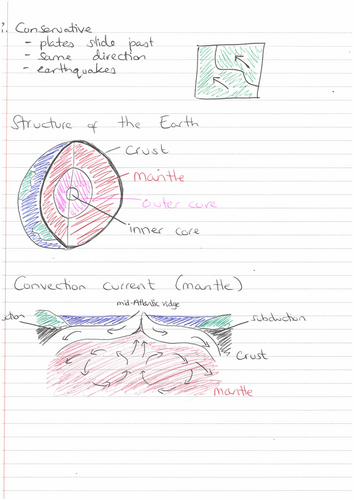 Conservative
- plates slide past
- same direction
- earthquakes
Structure of the Earth
crust
mantle
outer core
inner core
Convection current (mantle)
mid-Atlantic ridge
subduction
crust
mantle